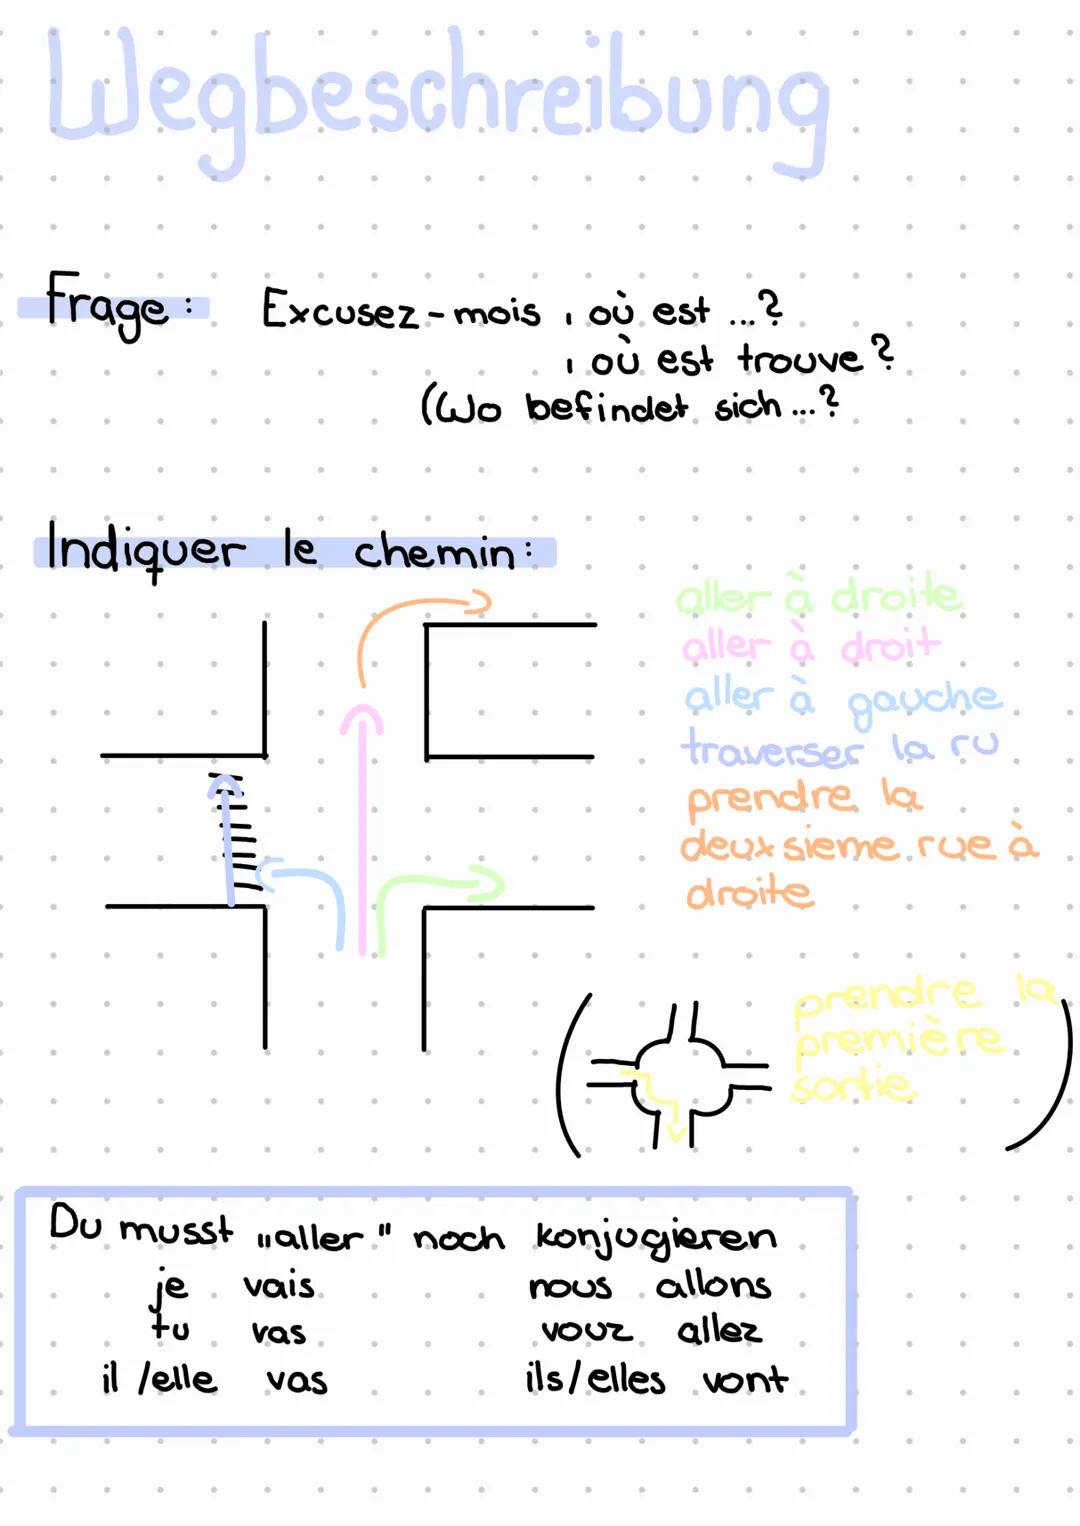 Wegbeschreibung
Frage: Excusez-mois, où est ...?
, où est trouve?
(Wo befindet sich ...?
Indiquer le chemin:
aller à droite
aller à droit
aller à gauche
traverser la ru
prendre la
deuxsieme rue à
droite
prendre la
première
sortie
Du musst „aller" noch konjugieren
je vais nous allons
tu vas vouz allez
il/elle vas ils/elles vont